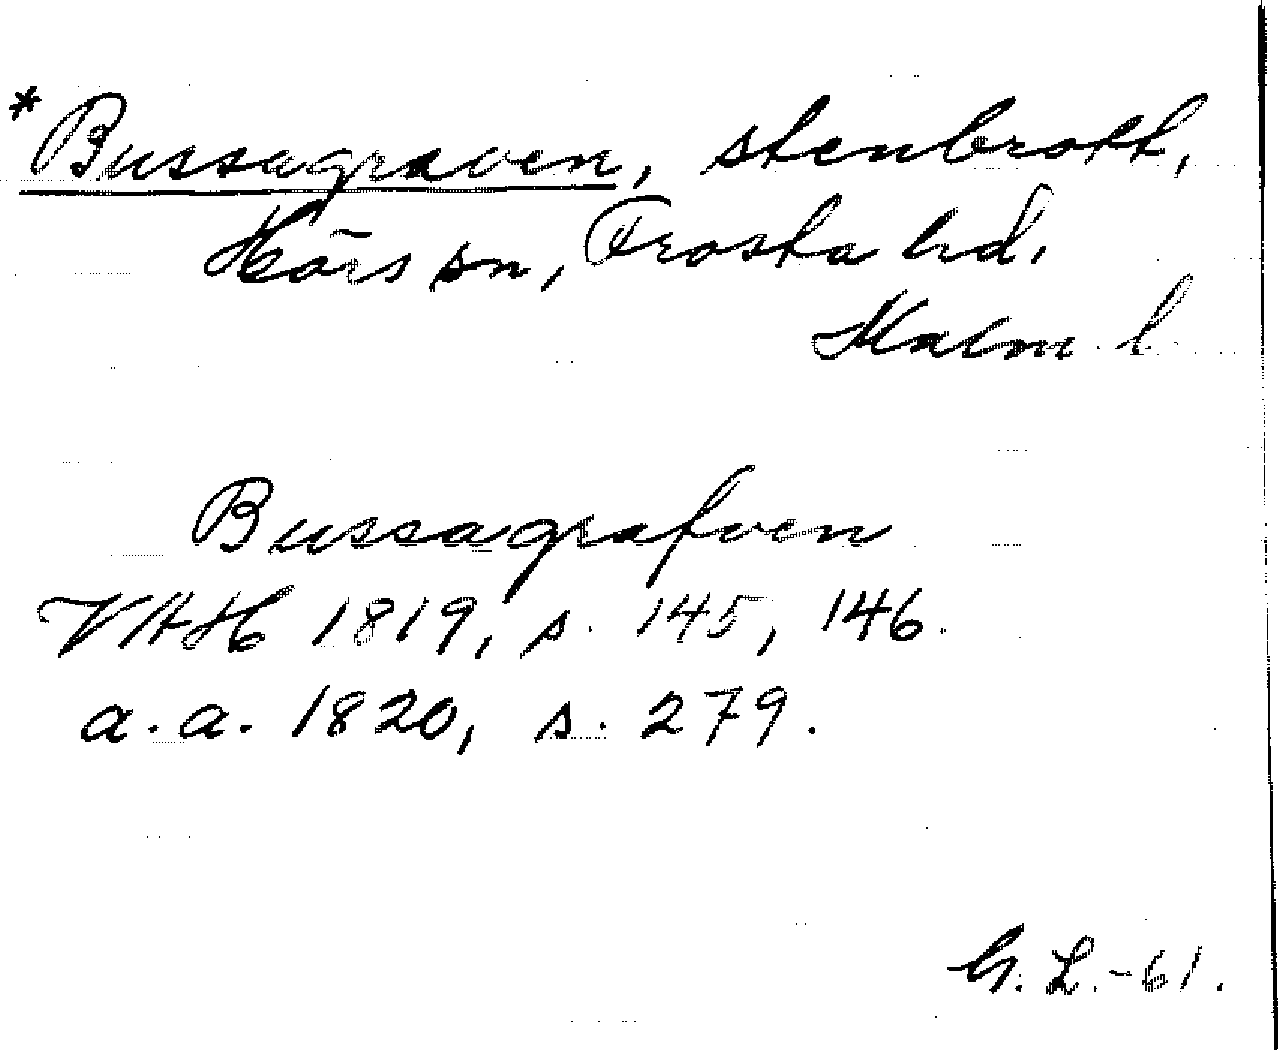 *Bussagraven, stenbrott,
Hörs sn, Frosta hd.
Malm. l.
Bussagrafven
VAH 1819, s. 145, 146.
a.a. 1820, s. 279.
G. L. -61.